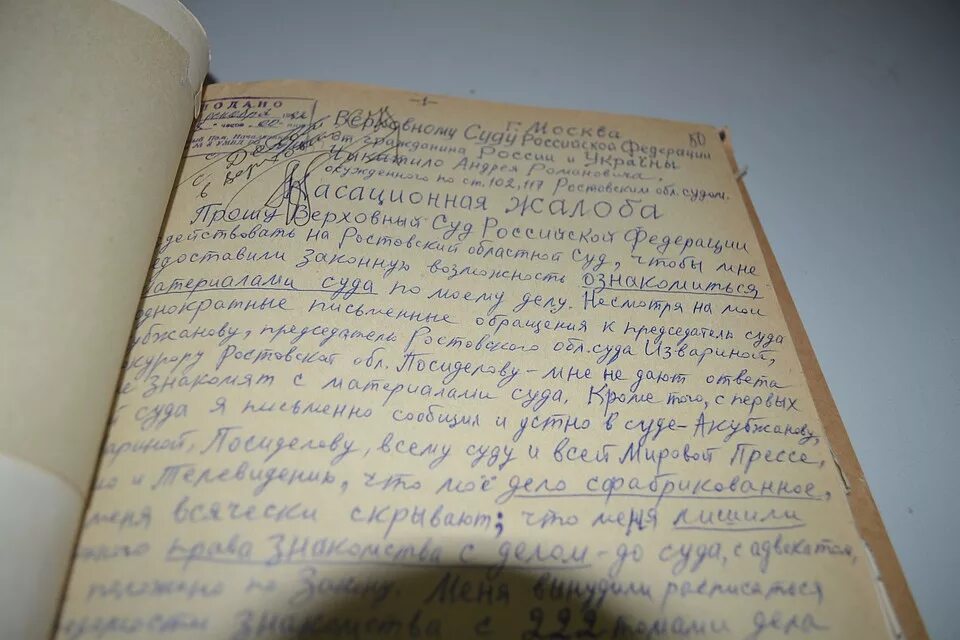 ПОДАНО
-1-
г. Москва
80
Верховному Суду Российской Федерации
от гражданина России и Украины
Чикатило Андрея Романовича,
осужденного по ст. 102, 117 Ростовским обл. судом.
Касационная жалоба
Прошу Верховный Суд Российской Федерации
действовать на Ростовский областной суд, чтобы мне
доставили законную возможность ознакомиться
материалами суда по моему делу. Несмотря на мои
однократные письменные обращения к председатель суда
убжанову, председатель Ростовского обл. суда Извариной,
курору Ростовской обл. Посиделову - мне не дают ответа
знакомят с материалами суда. Кроме того, с первых
суда я письменно сообщил и устно в суде - Акубжанову,
ариной, Посиделову, всему суду и всей Мировой Прессе,
и Телевидению, что моё дело сфабрикованное,
меня всячески скрывают; что меня лишили
права знакомства с делом - до суда, с адвокатом,
положено по Закону. Меня вынудили расписаться
знакомства с 222 томами дела